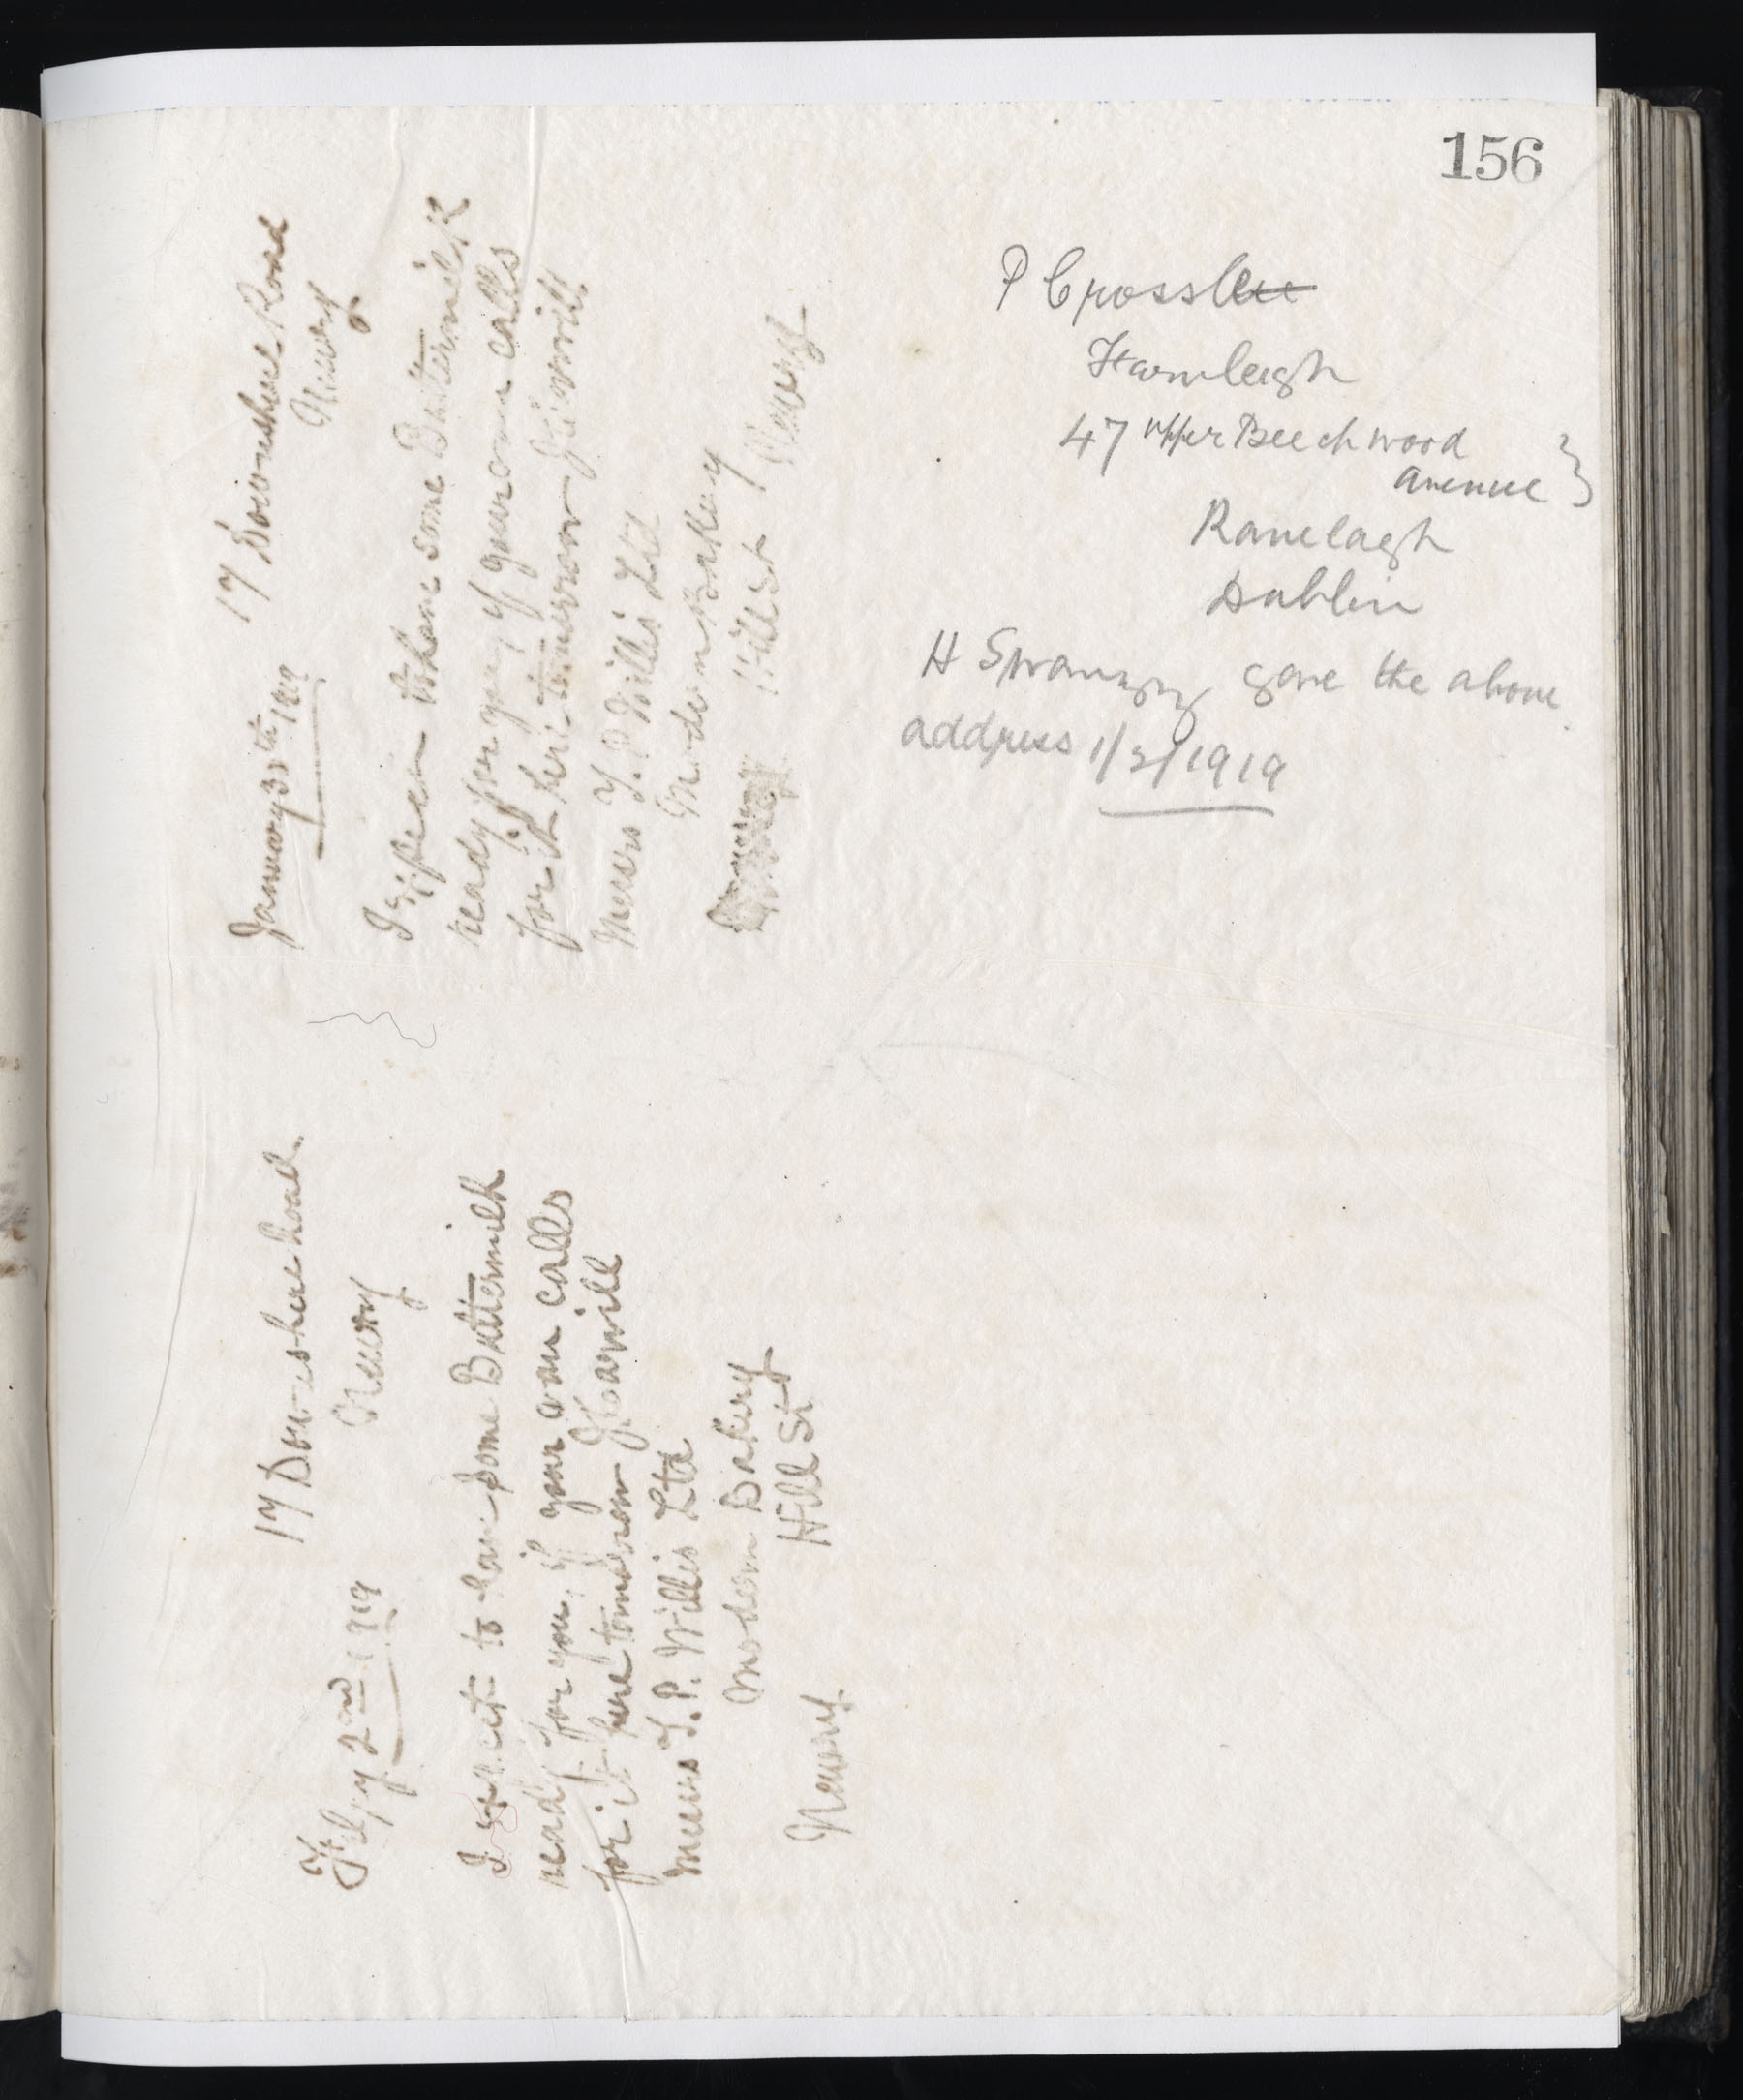 156
17 Downshire Road
Newry
January 31st 1919
I expect to have some Buttermilk
ready for you, if your own calls
for it here tomorrow
Messrs T. P. Willis Ltd
Modern Bakery
Hill St Newry
17 Downshire Road.
Newry
Feby 2nd 1919
I expect to have some Buttermilk
ready for you, if your own calls
for it here tomorrow
Messrs T. P. Willis Ltd
Modern Bakery
Hill St
Newry.
P Crosslee
Farmleigh
47 upper Beechwood
Avenue
Ranelagh
Dublin
H Swanzy gave the above
address 1/2/1919